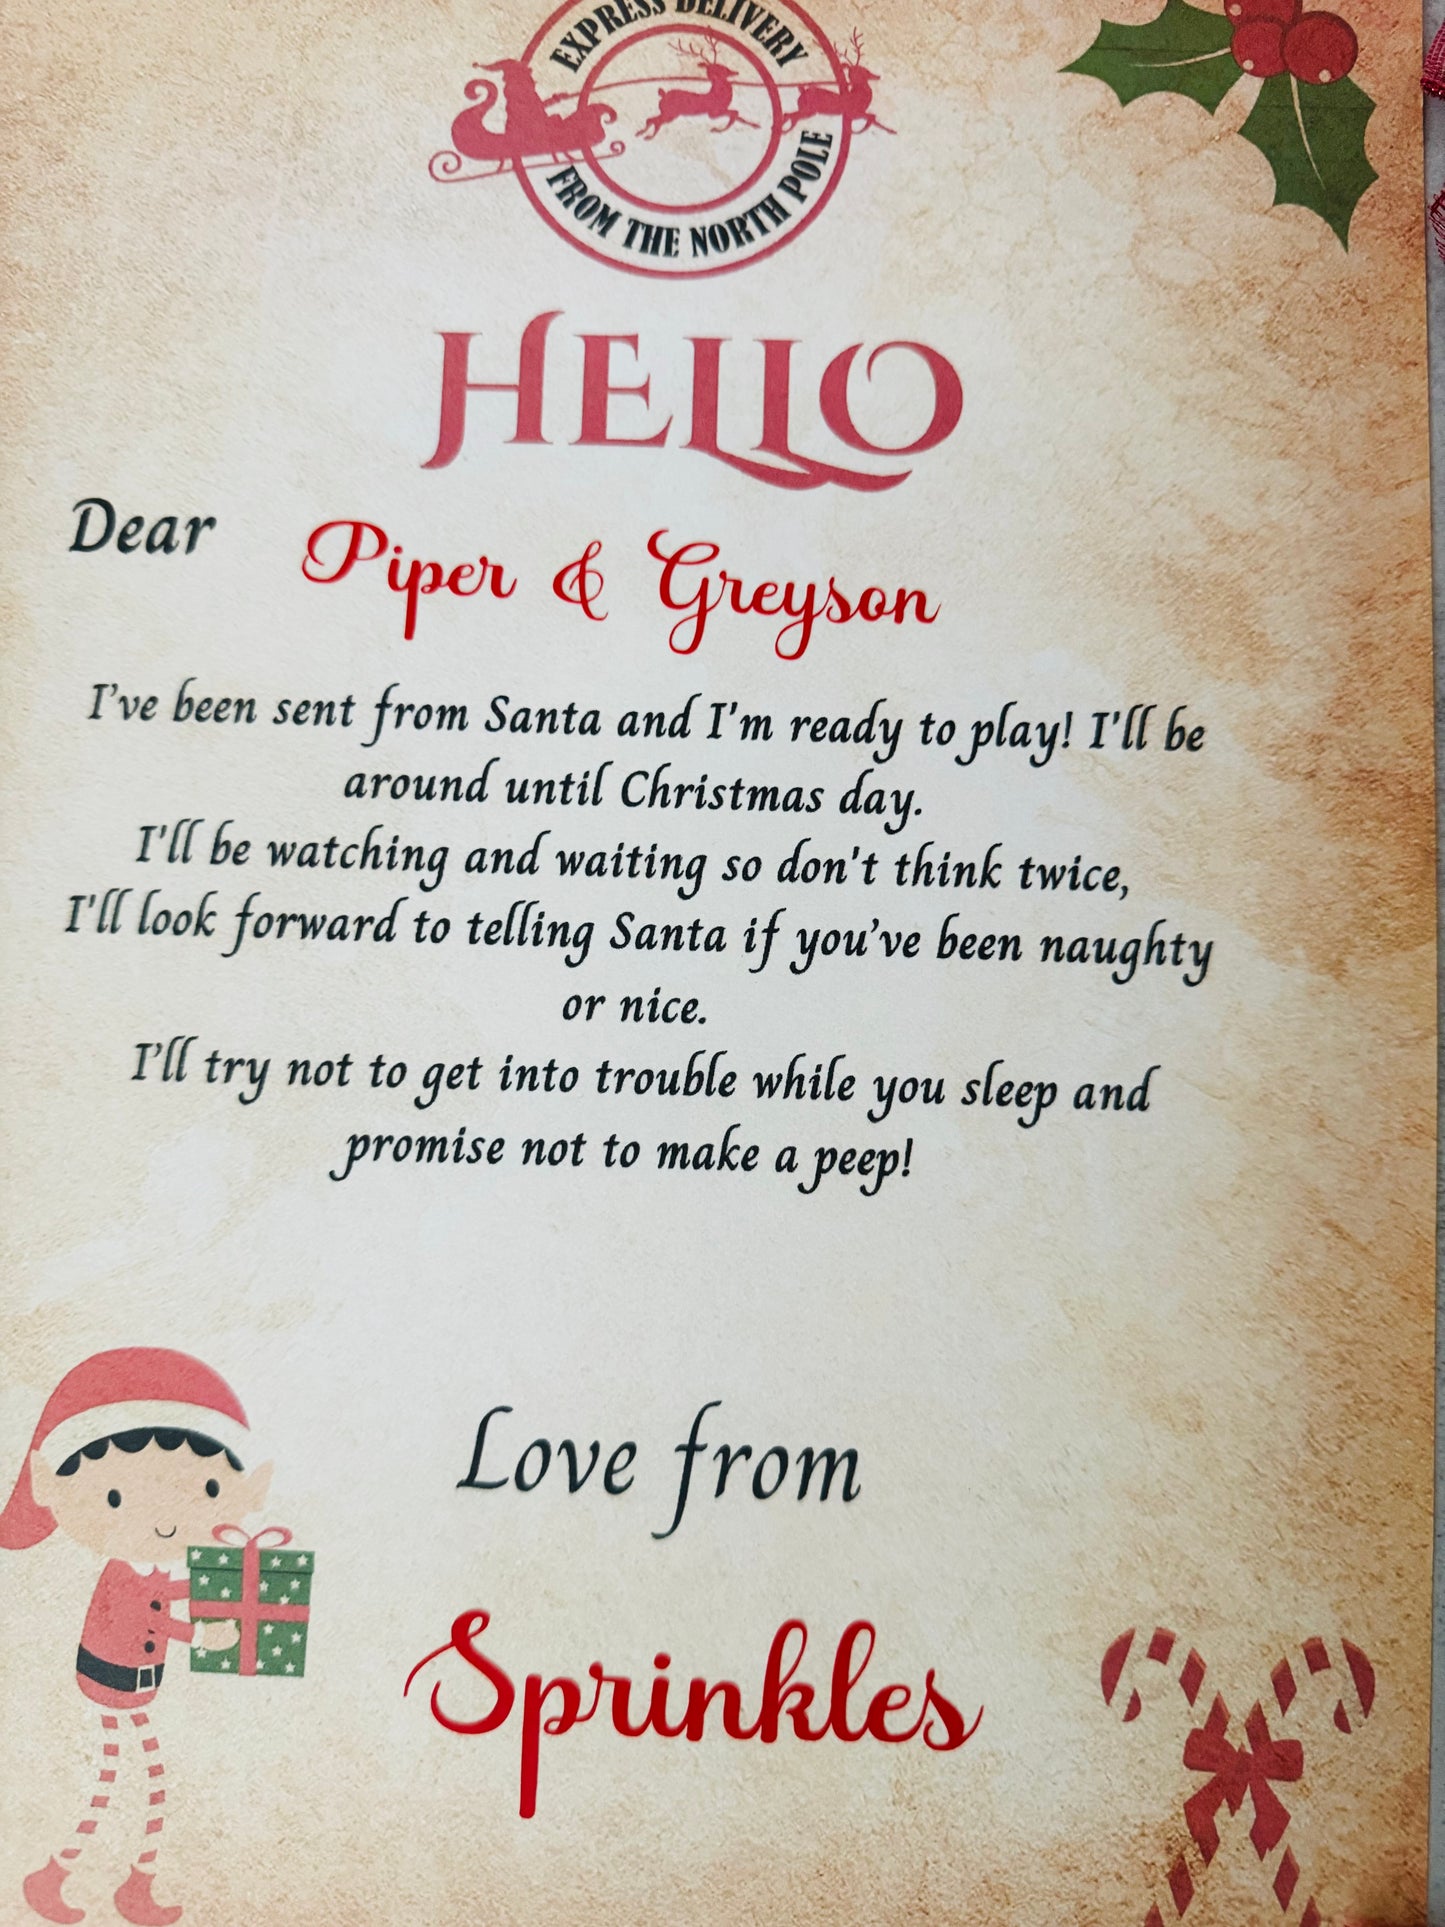 EXPRESS DELIVERY
FROM THE NORTH POLE
HELLO
Dear Piper & Greyson
I've been sent from Santa and I'm ready to play! I'll be
around until Christmas day.
I'll be watching and waiting so don't think twice,
I'll look forward to telling Santa if you've been naughty
or nice.
I'll try not to get into trouble while you sleep and
promise not to make a peep!
Love from
Sprinkles